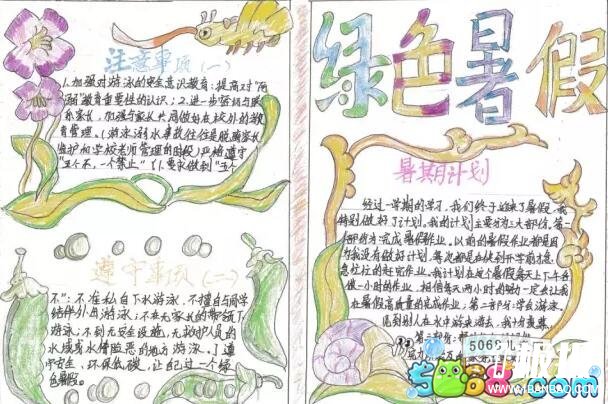 注意事项(一)
1.加强对游泳的安全意识教育:提高对"防
溺"教育重要性的认识;2.进一步密切与联
系家长,加强与家长共同做好在校外的教
育管理。(游泳溺水事故往往是脱离家长
监护和学校老师管理的时段)严格遵守
"五个不,一个禁止"(1.要求做到"五个
遵守事项(一)
不":不准私自下水游泳,不擅自同学
结伴外出游泳;不在无家长的带领下
游泳;不到无安全设施,无救护人员的
水域或水情险恶的地方游泳。)遵
守安全、环保低碳,让自己过一个绿
色暑假。
绿色暑假
暑期计划
经过一学期的学习,我们终于迎来了暑假,我
特别做好了计划。我的计划主要分为三大部份,第一
部份为完成暑假作业。以前的暑假作业都是因
为我没有做好计划,每次都是在快到开学前才急
急忙忙的赶完作业。我计划在这个暑假每天上下午各
做一小时的作业,相信每天两小时的努力一定会让我
在暑假高质量的完成作业。第二部分:学会游泳。
见到别人在水中游来游去,我十分羡慕,
5068儿
WWW.1BANBAO.COM